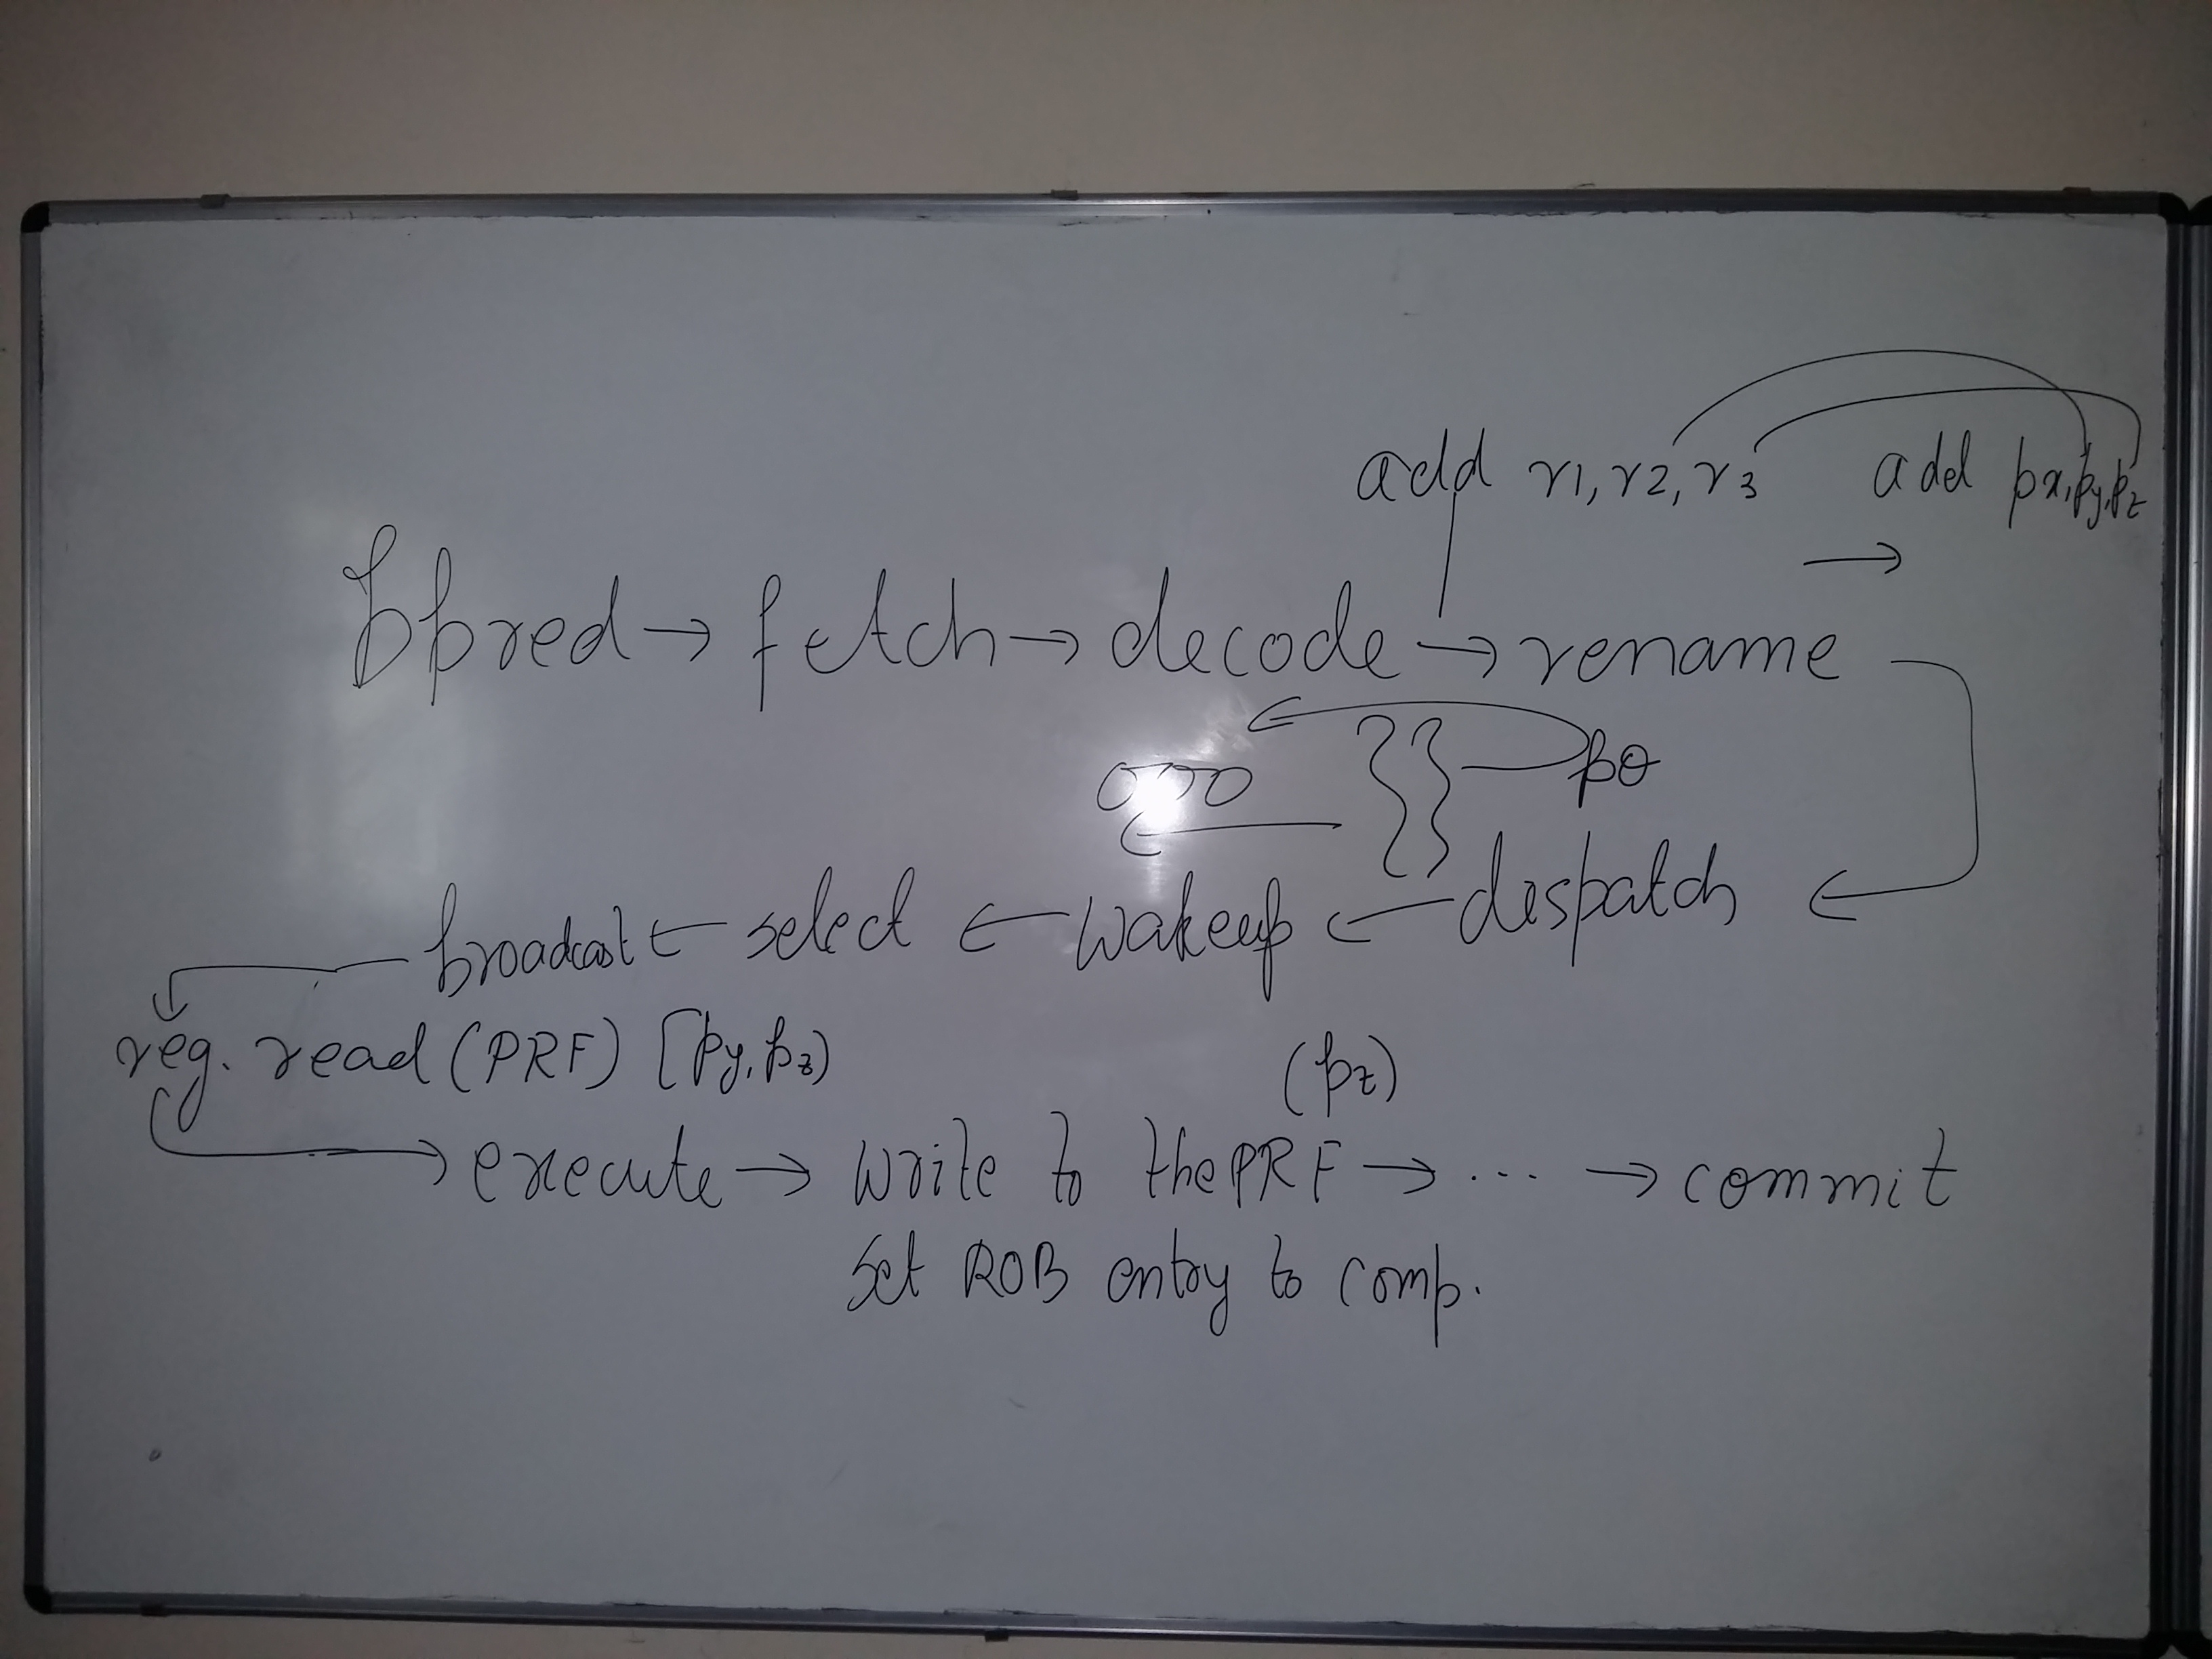 add r1, r2, r3 add px, py, pz
→
bpred → fetch → decode → rename
po
ooo
broadcast ← select ← wakeup ← dispatch
reg. read (PRF) [py, pz)
(pz)
execute → write to the PRF → ... → commit
set ROB entry to comp.